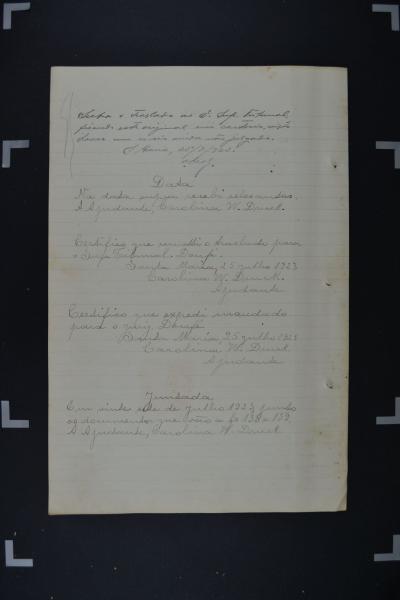 Suba o traslado ao E. Sup. Tribunal,
ficando este original em cartorio, visto
haver um réu ainda não julgado.
S. Maria, 25/7/923.
Data
Na data supra recebi estes autos.
A Ajudante, Carolina W. Druck.
Certifico que remetti o traslado para
o Sup. Tribunal. Dou fé.
Santa Maria, 25 julho 1923
Carolina W. Druck.
Ajudante
Certifico que expedi mandado
para o jury. Dou fé
Santa Maria, 25 julho 1923
Carolina W. Druck
Ajudante
Juntada
Em vinte sete de julho 1923, junto
os documentos que vão a fs 138 a 139.
A Ajudante, Carolina W. Druck